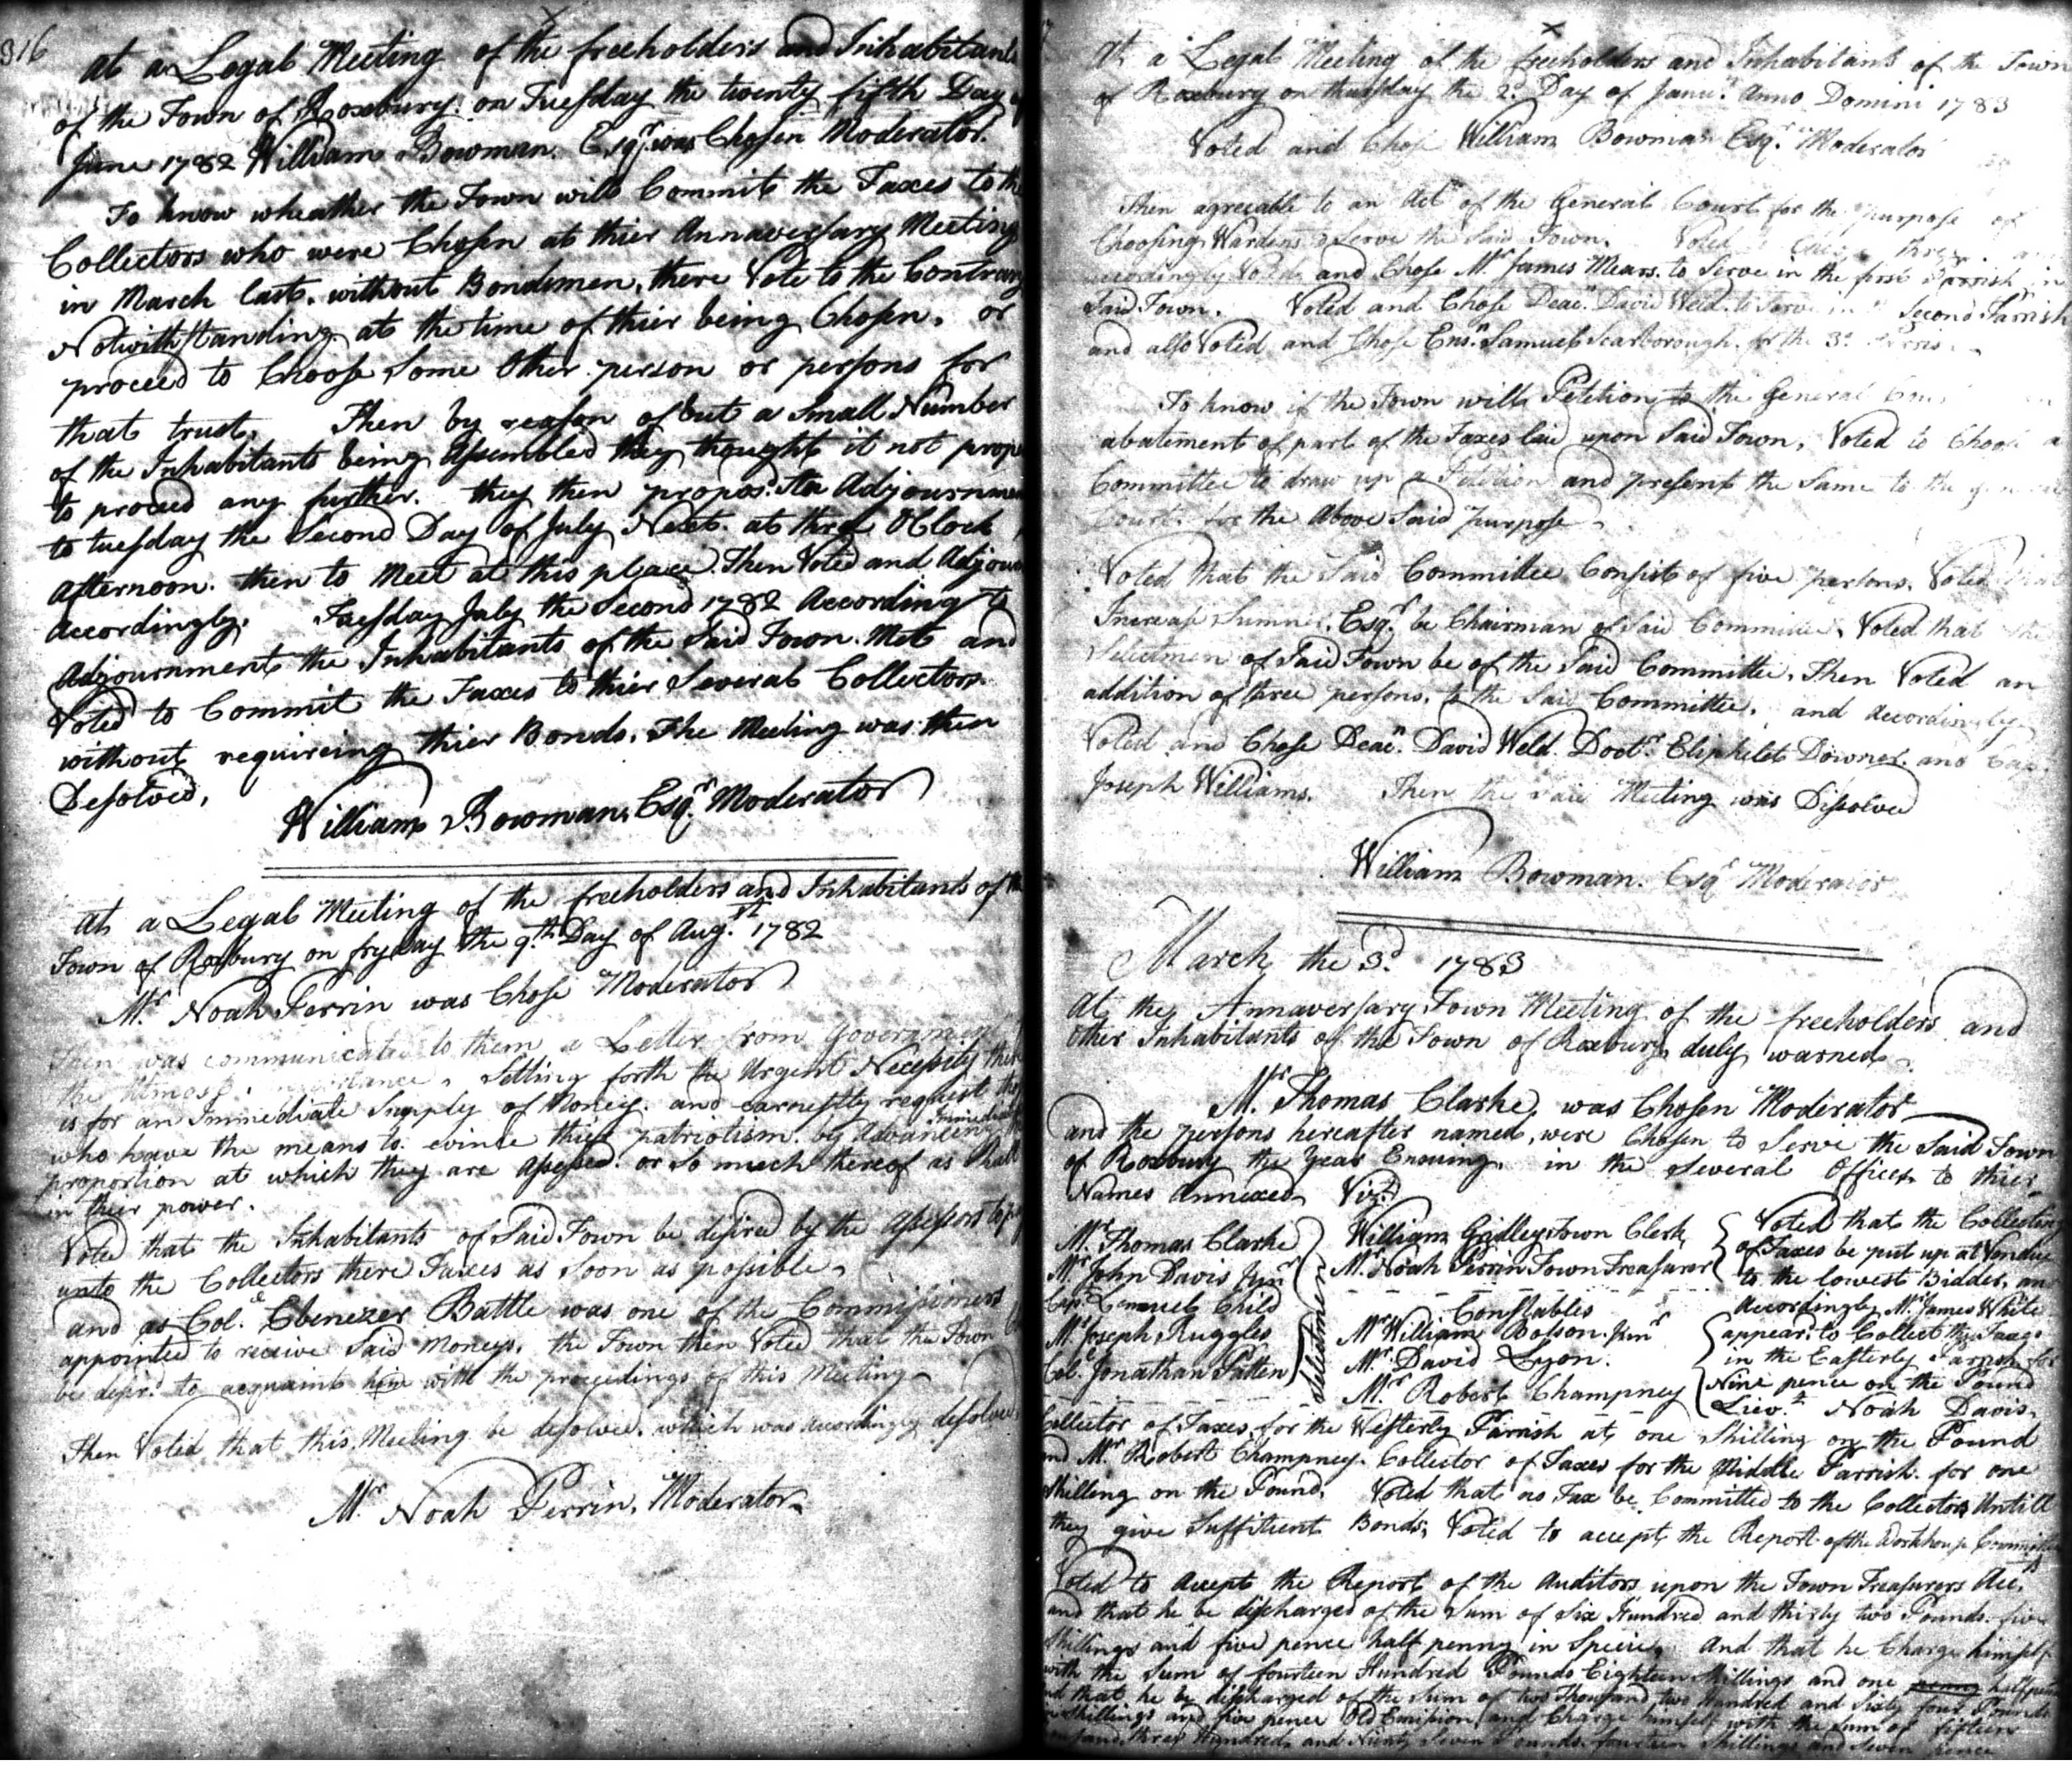 316
At a Legal Meeting of the freeholders and Inhabitants
of the Town of Roxbury on Tuesday the twenty fifth Day of
June 1782 William Bowman. Esqr. was Chosen Moderator.
To know wheather the Town will Commit the Taxes to the
Collectors who were Chosen at thier Annaversary Meeting
in March last. without Bondsmen, there Vote to the Contrary
Notwithstanding at the time of thier being Chosen. or
proceed to Choose Some Other person or persons for
that trust. Then by reason of but a Small Number
of the Inhabitants being Assembled they thought it not prope
to proceed any further. they then propos.d An Adjournmen
to tuesday the Second Day of July Next. at three OClock
Afternoon. then to Meet at this place. Then Voted and Adjourn
Accordingly. Tuesday July the Second 1782 According to
Adjournment the Inhabitants of the Said Town. Met and
Voted to Commit the Taxes to thier Several Collectors
without requireing thier Bonds. The Meeting was then
Desolved.
William Bowman. Esqr. Moderator
At a Legal Meeting of the freeholders and Inhabitants of the
Town of Roxbury on fryday the 9th. Day of Aug.st 1782
Mr. Noah Perrin was Chose Moderator
Then was communicated to them a Letter from Government
the Utmost Importance, Setting forth the Urgent Necessity there
is for an Immediate Supply of Money. and earnestly request they
who have the means to evince thier patriotism. by Advancing Immediately
proportion at which they are Assessed. or So much thereof as Shall
in their power.
Voted that the Inhabitants of Said Town be desired by the Assessors to p
unto the Collectors there Taxes as Soon as possible
and as Col. Ebenezer Battle was one of the Commissioners
appointed to receive Said Moneys. the Town then Voted that the Town
be desir.d to acquaint him with the proceedings of this Meeting
Then Voted that this Meeting be desolved. which was Accordingly desolved
Mr. Noah Perrin, Moderator
At a Legal Meeting of the freeholders and Inhabitants of the Town
of Roxbury on thursday the 2d. Day of Janu.y Anno Domini 1783
Voted and Chose William Bowman Esqr. Moderator
Then agreeable to an Act of the General Court for the purpose of
Choosing Wardens to Serve the Said Town. Voted three
accordingly Voted and Chose Mr. James Mears. to Serve in the first Parrish in
Said Town. Voted and Chose Deac.n David Weld. to Serve in Second Parrish
and also Voted and Chose Ens.n Samuel Scarborough. for the 3d Parrish
To know if the Town will Petition to the General
abatement of part of the Taxes laid upon Said Town, Voted to Choose a
Committee to draw up a Petition and present the Same to the general
Court. for the Above Said purpose
Voted that the Said Committee Consist of five persons. Voted that
Increase Sumner. Esqr. be Chairman of Said Committee. Voted that the
Selectmen of Said Town be of the Said Committee. Then Voted an
addition of three persons. to the Said Committee. and Accordingly
Voted and Chose Deac.n David Weld. Doct.r Eliphelet Downer. and Cap.
Joseph Williams. Then the Said Meeting was Dissolved
William Bowman. Esqr Moderator
March the 3d. 1783
At the Annaversary Town Meeting of the freeholders and
other Inhabitants of the Town of Roxbury duly warned
Mr. Thomas Clarke, was Chosen Moderator
and the persons hereafter named, were Chosen to Serve the Said Town
of Roxbury the Year Ensuing. in the Several Offices to thier
Names Annexed Viz.t
Mr. Thomas Clarke
Mr. John Davis Jun.r
Cap.t Lemuel Child
Mr. Joseph Ruggles
Col. Jonathan Patten
Selectmen
William Gridley Town Clerk
Mr. Noah Perrin Town Treasurer
Constables
Mr William Botson. Jun.r
Mr. David Lyon.
Mr. Robert Champney
Voted that the Collecting
of Taxes be put up at Vendue
to the lowest Bidder, an
Accordingly Mr. James White
appear.d to Collect the Taxes
in the Easterly Parrish for
Nine pence on the Pound
Liev.t Noah Davis.
Collector of Taxes for the Westerly Parrish at one Shilling on the Pound
and Mr Robert Champney. Collector of Taxes for the Middle Parrish. for one
Shilling on the Pound. Voted that no Tax be Committed to the Collectors Untill
they give Suffitient Bonds; Voted to accept the Report of the Workhouse Committee
Voted to Accept the Report of the Auditors upon the Town Treasurers Acc.ts
and that he be discharged of the Sum of Six Hundred and thirty two Pounds. five
Shillings and five pence half penny in Specie, And that he Charge himself
with the Sum of fourteen Hundred Pounds Eighteen Shillings and one penny half penny
and that he be discharged of the Sum of two Thousand two Hundred and Sixty four Pounds
Shillings and five pence Old Emission and Charge himself with the Sum of fifteen
thousand, three Hundred, and Ninty Seven Pounds. fourteen Shillings and Seven pence